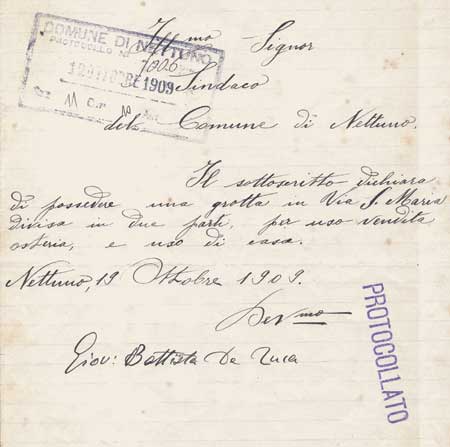 Ill.mo Signor
COMUNE DI NETTUNO
PROTOCOLLO N. 7006
12 OTTOBRE 1909
Cat. 11 Cl. 10 Fasc.
Sindaco
del Comune di Nettuno.
Il sottoscritto dichiara
di possedere una grotta in Via S. Maria
divisa in due parti, per uso vendita
osteria, e uso di casa.
Nettuno, 19 Ottobre 1909.
Dev.mo
Giov: Battista De Luca
PROTOCOLLATO